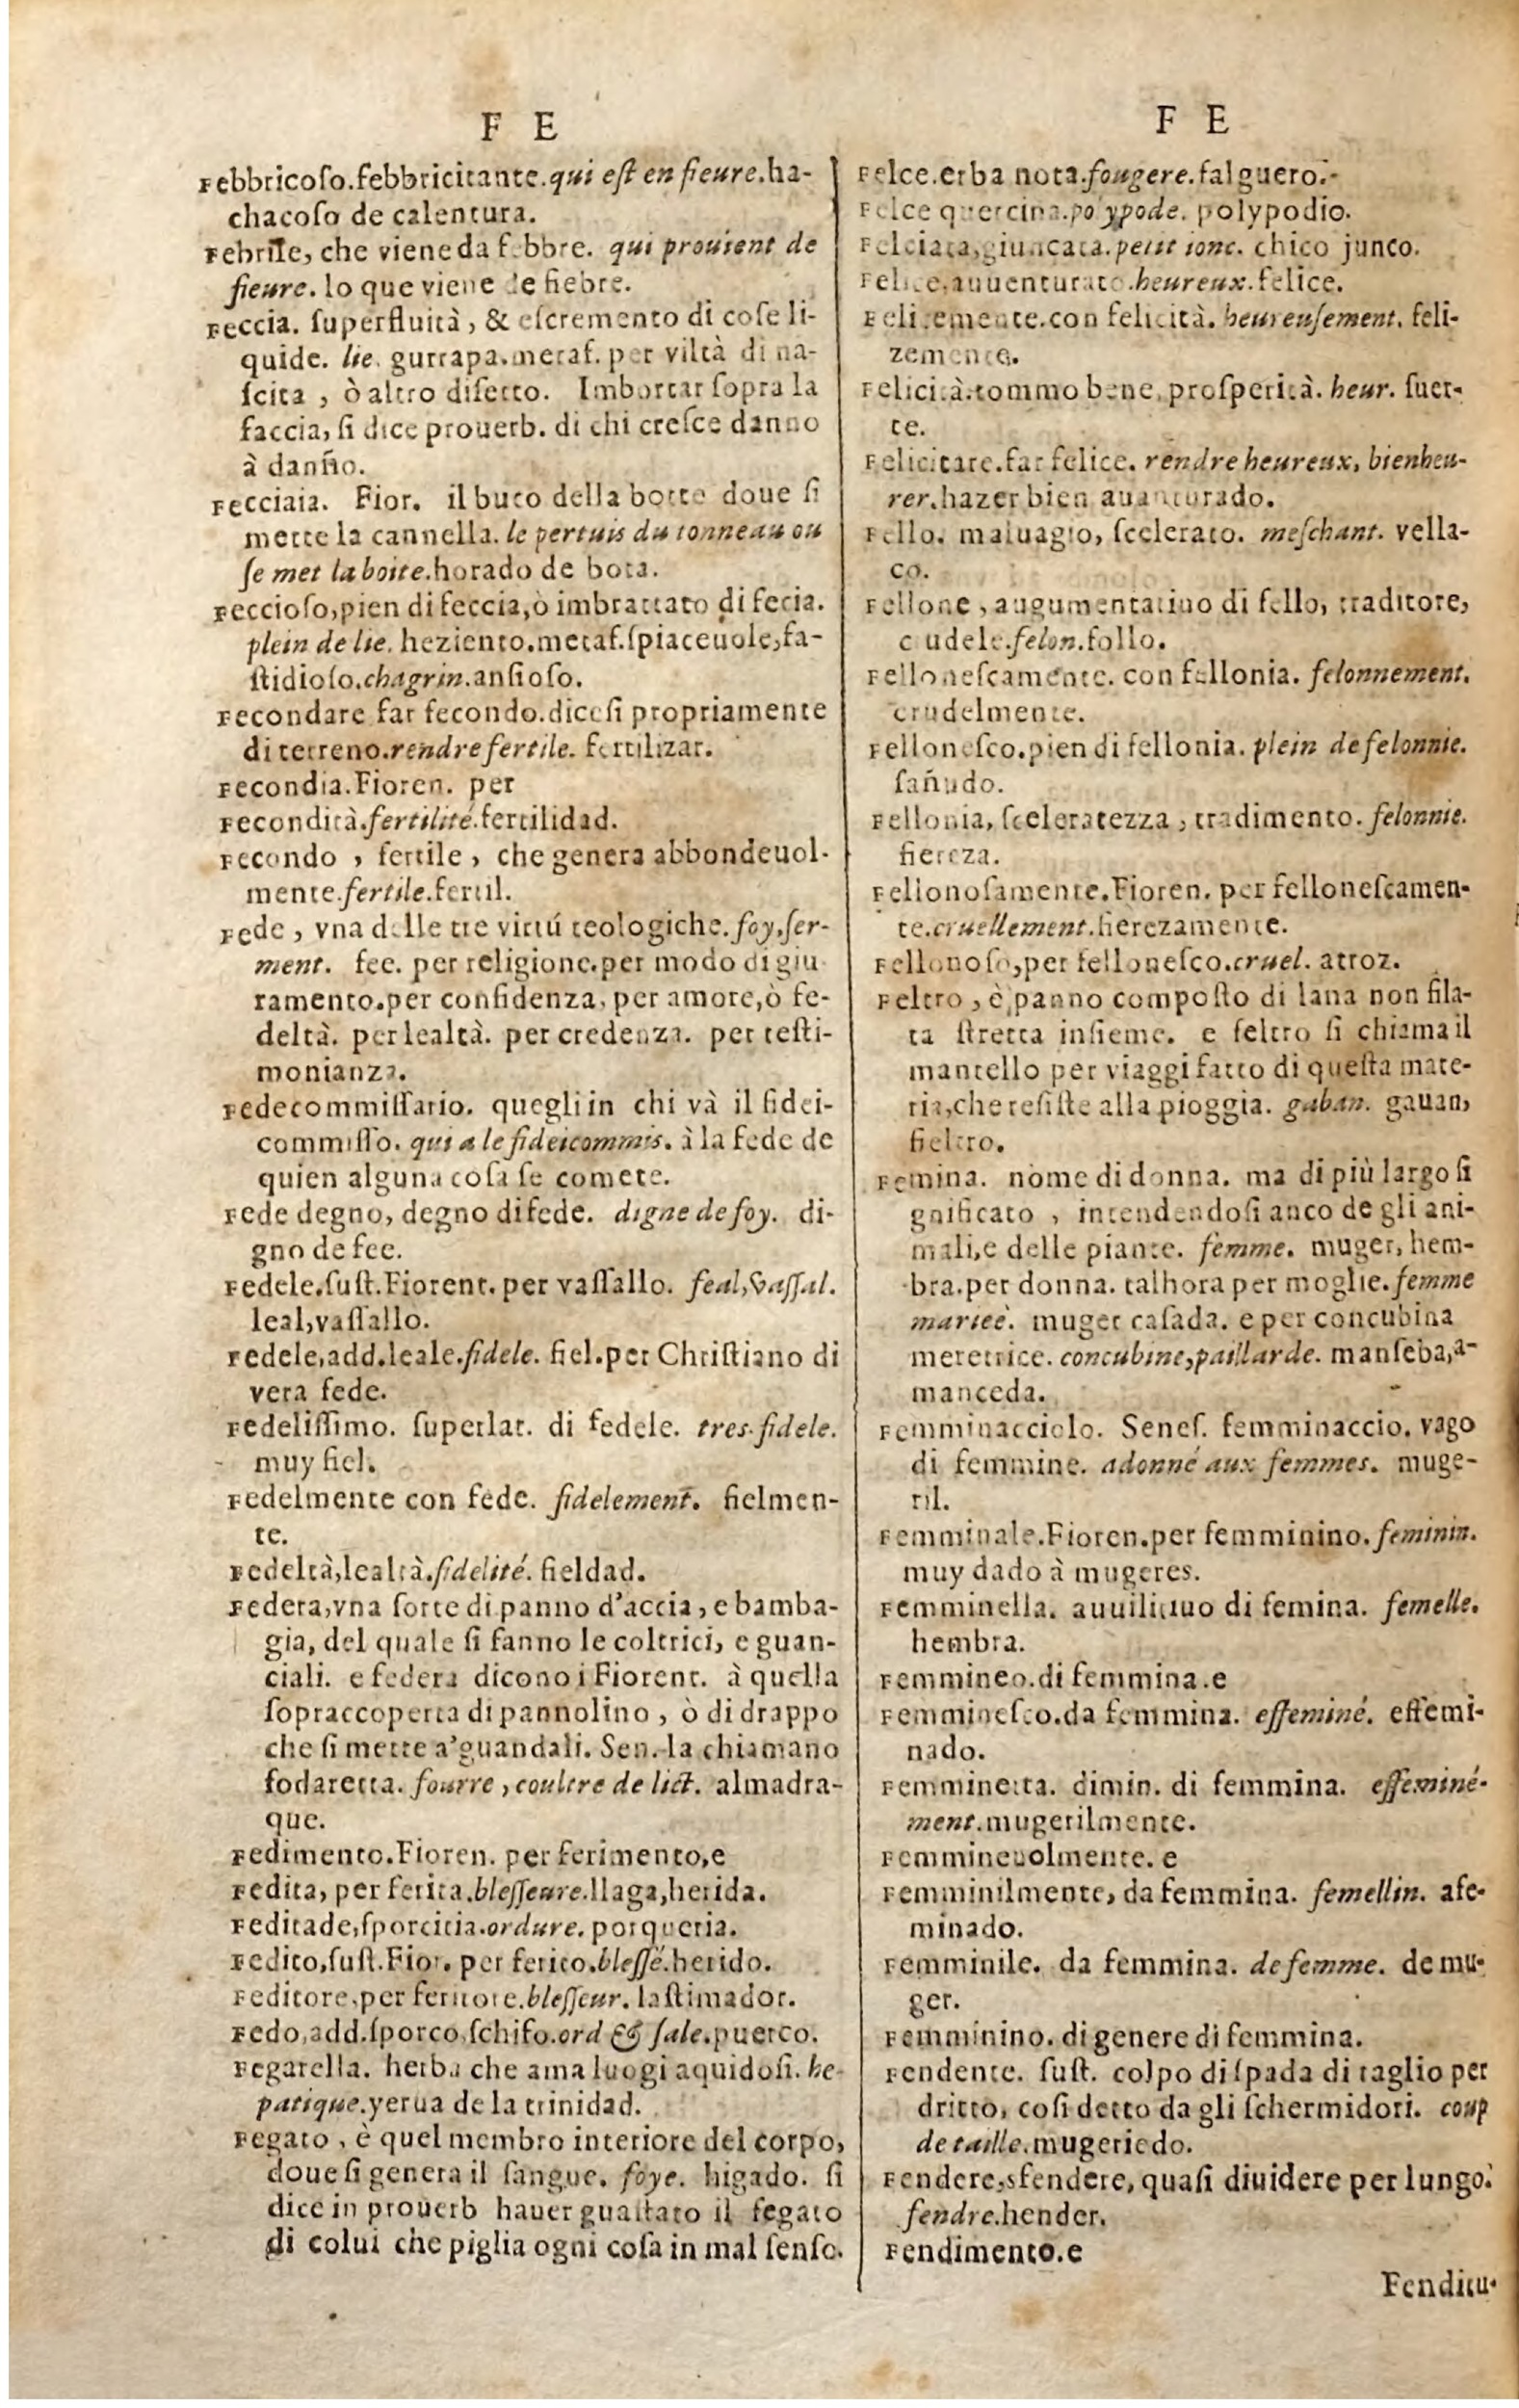 F E
Febbricoſo.febbricitante.qui eſt en fieure.ha-
chacoſo de calentura.
Febrile, che viene da febbre. qui prouient de
fieure. lo que viene de fiebre.
Feccia. ſuperfluità, & eſcremento di coſe li-
quide. lie. gurrapa.metaf. per viltà di na-
ſcita, ò altro difetto. Imbottar ſopra la
faccia, ſi dice prouerb. di chi creſce danno
à danño.
Fecciaia. Fior. il buco della botte doue ſi
mette la cannella. le pertuis du tonneau ou
ſe met la boite.horado de bota.
Feccioſo,pien di feccia,ò imbrattato di fecia.
plein de lie. heziento.metaf.ſpiaceuole,fa-
ſtidioſo.chagrin.anſioſo.
Fecondare far fecondo.diceſi propriamente
di terreno.rendre fertile. fertilizar.
Fecondia.Fioren. per
Fecondità.fertilité.fertilidad.
Fecondo, fertile, che genera abbondeuol-
mente.fertile.fertil.
Fede, vna delle tre virtú teologiche.foy,ſer-
ment. fee. per religione.per modo di giu
ramento.per confidenza, per amore,ò fe-
deltà. per lealtà. per credenza. per teſti-
monianza.
Fedecommiſſario. quegli in chi và il fidei-
commiſſo. qui a le fideicommis. à la fede de
quien alguna coſa ſe comete.
Fede degno, degno di fede. digne de foy. di-
gno de fee.
Fedele.ſuſt.Fiorent. per vaſſallo. feal,vaſſal.
leal,vaſſallo.
Fedele,add.leale.fidele. fiel.per Chriſtiano di
vera fede.
Fedeliſſimo. ſuperlat. di fedele. tres-fidele.
muy fiel.
Fedelmente con fede. fidelement. fielmen-
te.
Fedeltà,lealtà.fidelité. fieldad.
Federa,vna ſorte di panno d'accia, e bamba-
gia, del quale ſi fanno le coltrici, e guan-
ciali. e federa dicono i Fiorent. à quella
ſopraccoperta di pannolino, ò di drappo
che ſi mette a'guandali. Sen. la chiamano
fodaretta. fourre, coultre de lict. almadra-
que.
Fedimento.Fioren. per ferimento,e
Fedita, per ferita.bleſſeure.llaga,herida.
Feditade,ſporcitia.ordure. porqueria.
Fedito,ſuſt.Fior. per ferito.bleſſé.herido.
Feditore,per feritore.bleſſeur. laſtimador.
Fedo,add.ſporco,ſchifo.ord & ſale.puerco.
Fegarella. herba che ama luogi aquidoſi. he-
patique.yerua de la trinidad.
Fegato, è quel membro interiore del corpo,
doue ſi genera il ſangue. foye. higado. ſi
dice in prouerb hauer guaſtato il fegato
di colui che piglia ogni coſa in mal ſenſo.
F E
Felce.erba nota.fougere.falguero.
Felce quercina.polypode. polypodio.
Felciata,giuncata.petit ionc. chico junco.
Felice,auuenturato.heureux.felice.
Felicemente.con felicità. heureuſement. feli-
zemente.
Felicità.ſommo bene, proſperità. heur. ſuer-
te.
Felicitare.far felice. rendre heureux, bienheu-
rer.hazer bien auanturado.
Fello. maluagio, ſcelerato. meſchant. vella-
co.
Fellone, augumentatiuo di fello, traditore,
crudele.felon.follo.
Felloneſcamente. con fellonia. felonnement.
crudelmente.
Felloneſco.pien di fellonia. plein de felonnie.
ſañudo.
Fellonia, ſceleratezza, tradimento. felonnie.
fiereza.
Fellonoſamente.Fioren. per felloneſcamen-
te.cruellement.fierezamente.
Fellonoſo,per felloneſco.cruel. atroz.
Feltro, è panno compoſto di lana non fila-
ta ſtretta inſieme. e feltro ſi chiama il
mantello per viaggi fatto di queſta mate-
ria,che reſiſte alla pioggia. gaban. gauan,
fieltro.
Femina. nome di donna. ma di più largo ſi
gnificato, intendendoſi anco de gli ani-
mali,e delle piante. femme. muger, hem-
bra.per donna. talhora per moglie.femme
marieè. muger caſada. e per concubina
meretrice. concubine,paillarde. manſeba,a-
manceda.
Femminacciolo. Seneſ. femminaccio. vago
di femmine. adonné aux femmes. muge-
ril.
Femminale.Fioren.per femminino.feminin.
muy dado à mugeres.
Femminella. auuilitiuo di femina. femelle.
hembra.
Femmineo.di femmina.e
Femmineſco.da femmina. effeminé. effemi-
nado.
Femminetta. dimin. di femmina. effeminé-
ment.mugerilmente.
Femmineuolmente. e
Femminilmente, da femmina. femellin. afe-
minado.
Femminile. da femmina. de femme. de mu-
ger.
Femminino. di genere di femmina.
Fendente. ſuſt. colpo di ſpada di taglio per
dritto, coſi detto da gli ſchermidori. coup
de taille.mugeriedo.
Fendere,sfendere, quaſi diuidere per lungo.
fendre.hender.
Fendimento.e
Fenditu-